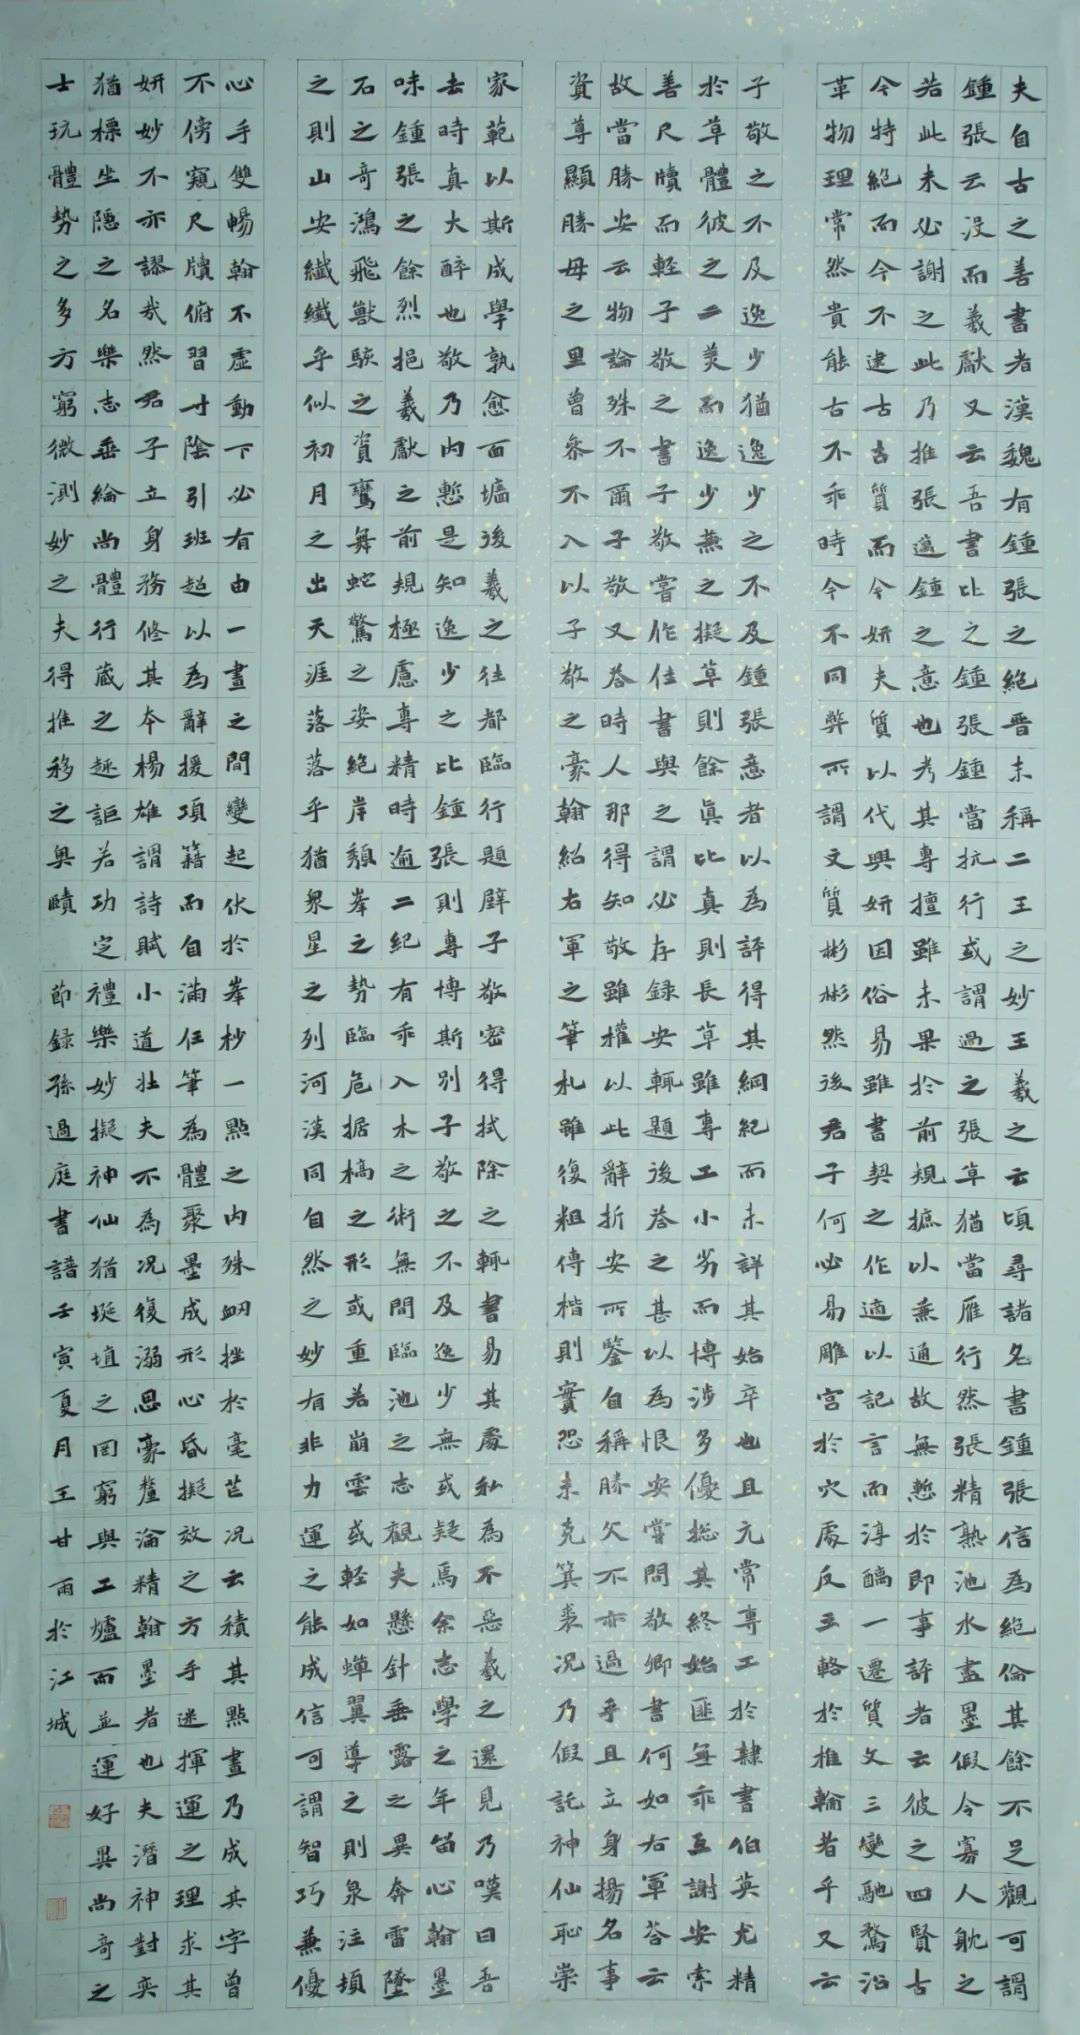 夫自古之善書者漢魏有鍾張之絕晉末稱二王之妙王羲之云頃尋諸名書鍾張信為絕倫其餘不足觀可謂
鍾張云沒而羲獻又云吾書比之鍾張鍾當抗行或謂過之張草猶當雁行然張精熟池水盡墨假令寡人耽之
若此未必謝之此乃推張邁鍾之意也考其專擅雖未果於前規摭以兼通故無慙於即事評者云彼之四賢古
今特絕而今不逮古古質而今妍夫質以代興妍因俗易雖書契之作適以記言而淳醨一遷質文三變馳騖沿
革物理常然貴能古不乖時今不同弊所謂文質彬彬然後君子何必易雕宮於穴處反玉輅於椎輪者乎又云
子敬之不及逸少猶逸少之不及鍾張意者以為評得其綱紀而未詳其始卒也且元常專工於隸書伯英尤精
於草體彼之二美而逸少兼之擬草則餘真比真則長草雖專工小劣而博涉多優摠其終始匪無乖互謝安素
善尺牘而輕子敬之書子敬嘗作佳書與之謂必存錄安輒題後答之甚以為恨安嘗問敬卿書何如右軍答云
故當勝安云物論殊不爾子敬又答時人那得知敬雖權以此辭折安所鑒自稱勝父不亦過乎且立身揚名事
資尊顯勝母之里曾參不入以子敬之豪翰紹右軍之筆札雖復粗傳楷則實恐未克箕裘況乃假託神仙恥崇
家範以斯成學孰愈面墻後羲之往都臨行題壁子敬密得拭除之輒書易其處私為不惡羲之還見乃嘆曰吾
去時真大醉也敬乃內慙是知逸少之比鍾張則專博斯別子敬之不及逸少無或疑焉余志學之年留心翰墨
味鍾張之餘烈挹羲獻之前規極慮專精時逾二紀有乖入木之術無間臨池之志觀夫懸針垂露之異奔雷墜
石之奇鴻飛獸駭之資鸞舞蛇驚之姿絕岸頹峯之勢臨危據槁之形或重若崩雲或輕如蟬翼導之則泉注頓
之則山安纖纖乎似初月之出天涯落落乎猶眾星之列河漢同自然之妙有非力運之能成信可謂智巧兼優
心手雙暢翰不虛動下必有由一畫之間變起伏於峯杪一點之內殊衄挫於毫芒況云積其點畫乃成其字曾
不傍窺尺牘俯習寸陰引班超以為辭援項籍而自滿任筆為體聚墨成形心昏擬效之方手迷揮運之理求其
妍妙不亦謬哉然君子立身務修其本楊雄謂詩賦小道壯夫不為況復溺思豪釐淪精翰墨者也夫潛神對奕
猶標坐隱之名樂志垂綸尚體行藏之趣詎若功定禮樂妙擬神仙猶埏埴之罔窮與工爐而並運好異尚奇之
士玩體勢之多方窮微測妙之夫得推移之奧賾 節錄孫過庭書譜壬寅夏月王甘雨於江城